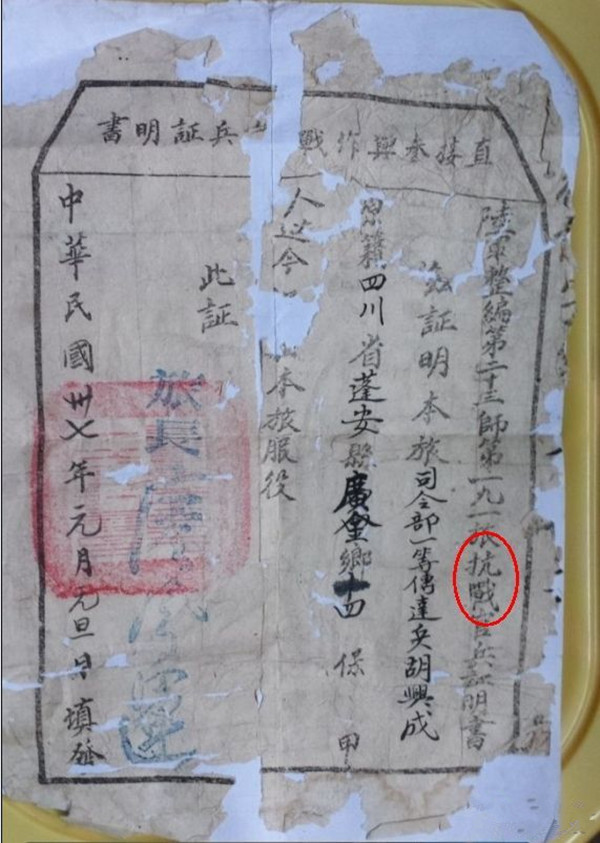 直接參與作戰 兵証明書
陸軍整編第二十三師第一九一旅抗戰官兵証明書
茲証明本旅司令部一等傳達兵胡興成
原籍四川省蓬安縣廣金鄉十四保 甲
人迄今 本旅服役
此証
旅長
中華民國卅七年元月元旦日填發